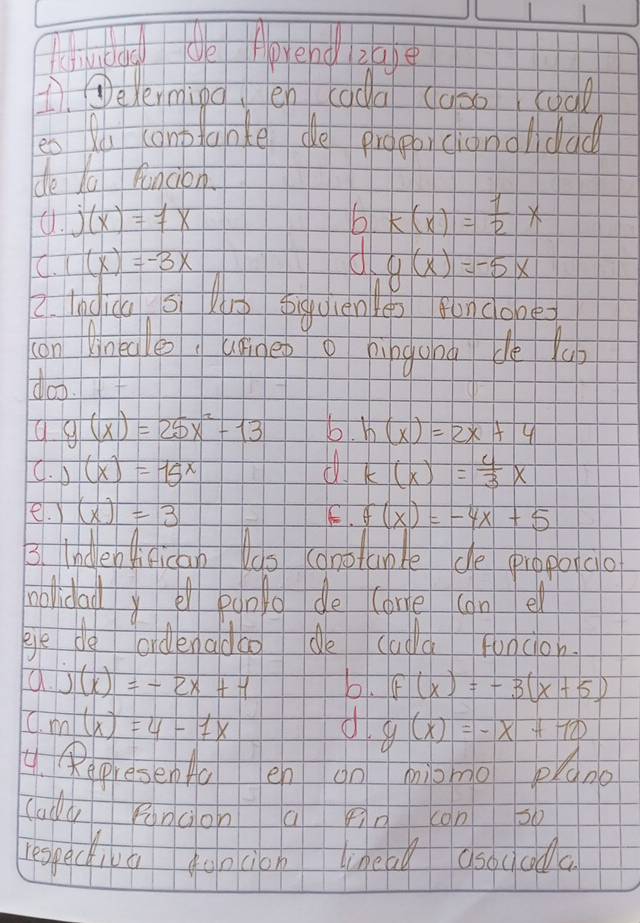 Actividad de Aprendizaje
1). Determina, en cada caso, cual
es la constante de proporcionalidad
de la funcion.
a. j(x) = 1x b. k(x) = 1/2 x
c. (x) = -3x d. g(x) = -5x
2. Indica si las siguientes funciones
son lineales, afines o ninguna de las
dos.
a. g(x) = 25x² - 13 b. h(x) = 2x + 4
c. j(x) = 15ˣ d. k(x) = 4/3 x
e. j(x) = 3 f. f(x) = -4x + 5
3. Indentifican las constante de proporcio
nalidad y el punto de corre con el
eje de ordenadas de cada funcion.
a. j(x) = -2x + 1 b. f(x) = -3(x+5)
c. m(x) = 4 - 1x d. g(x) = -x + 10
4. Representa en un mismo plano
cada funcion a fin con su
respectiva funcion lineal asociada.